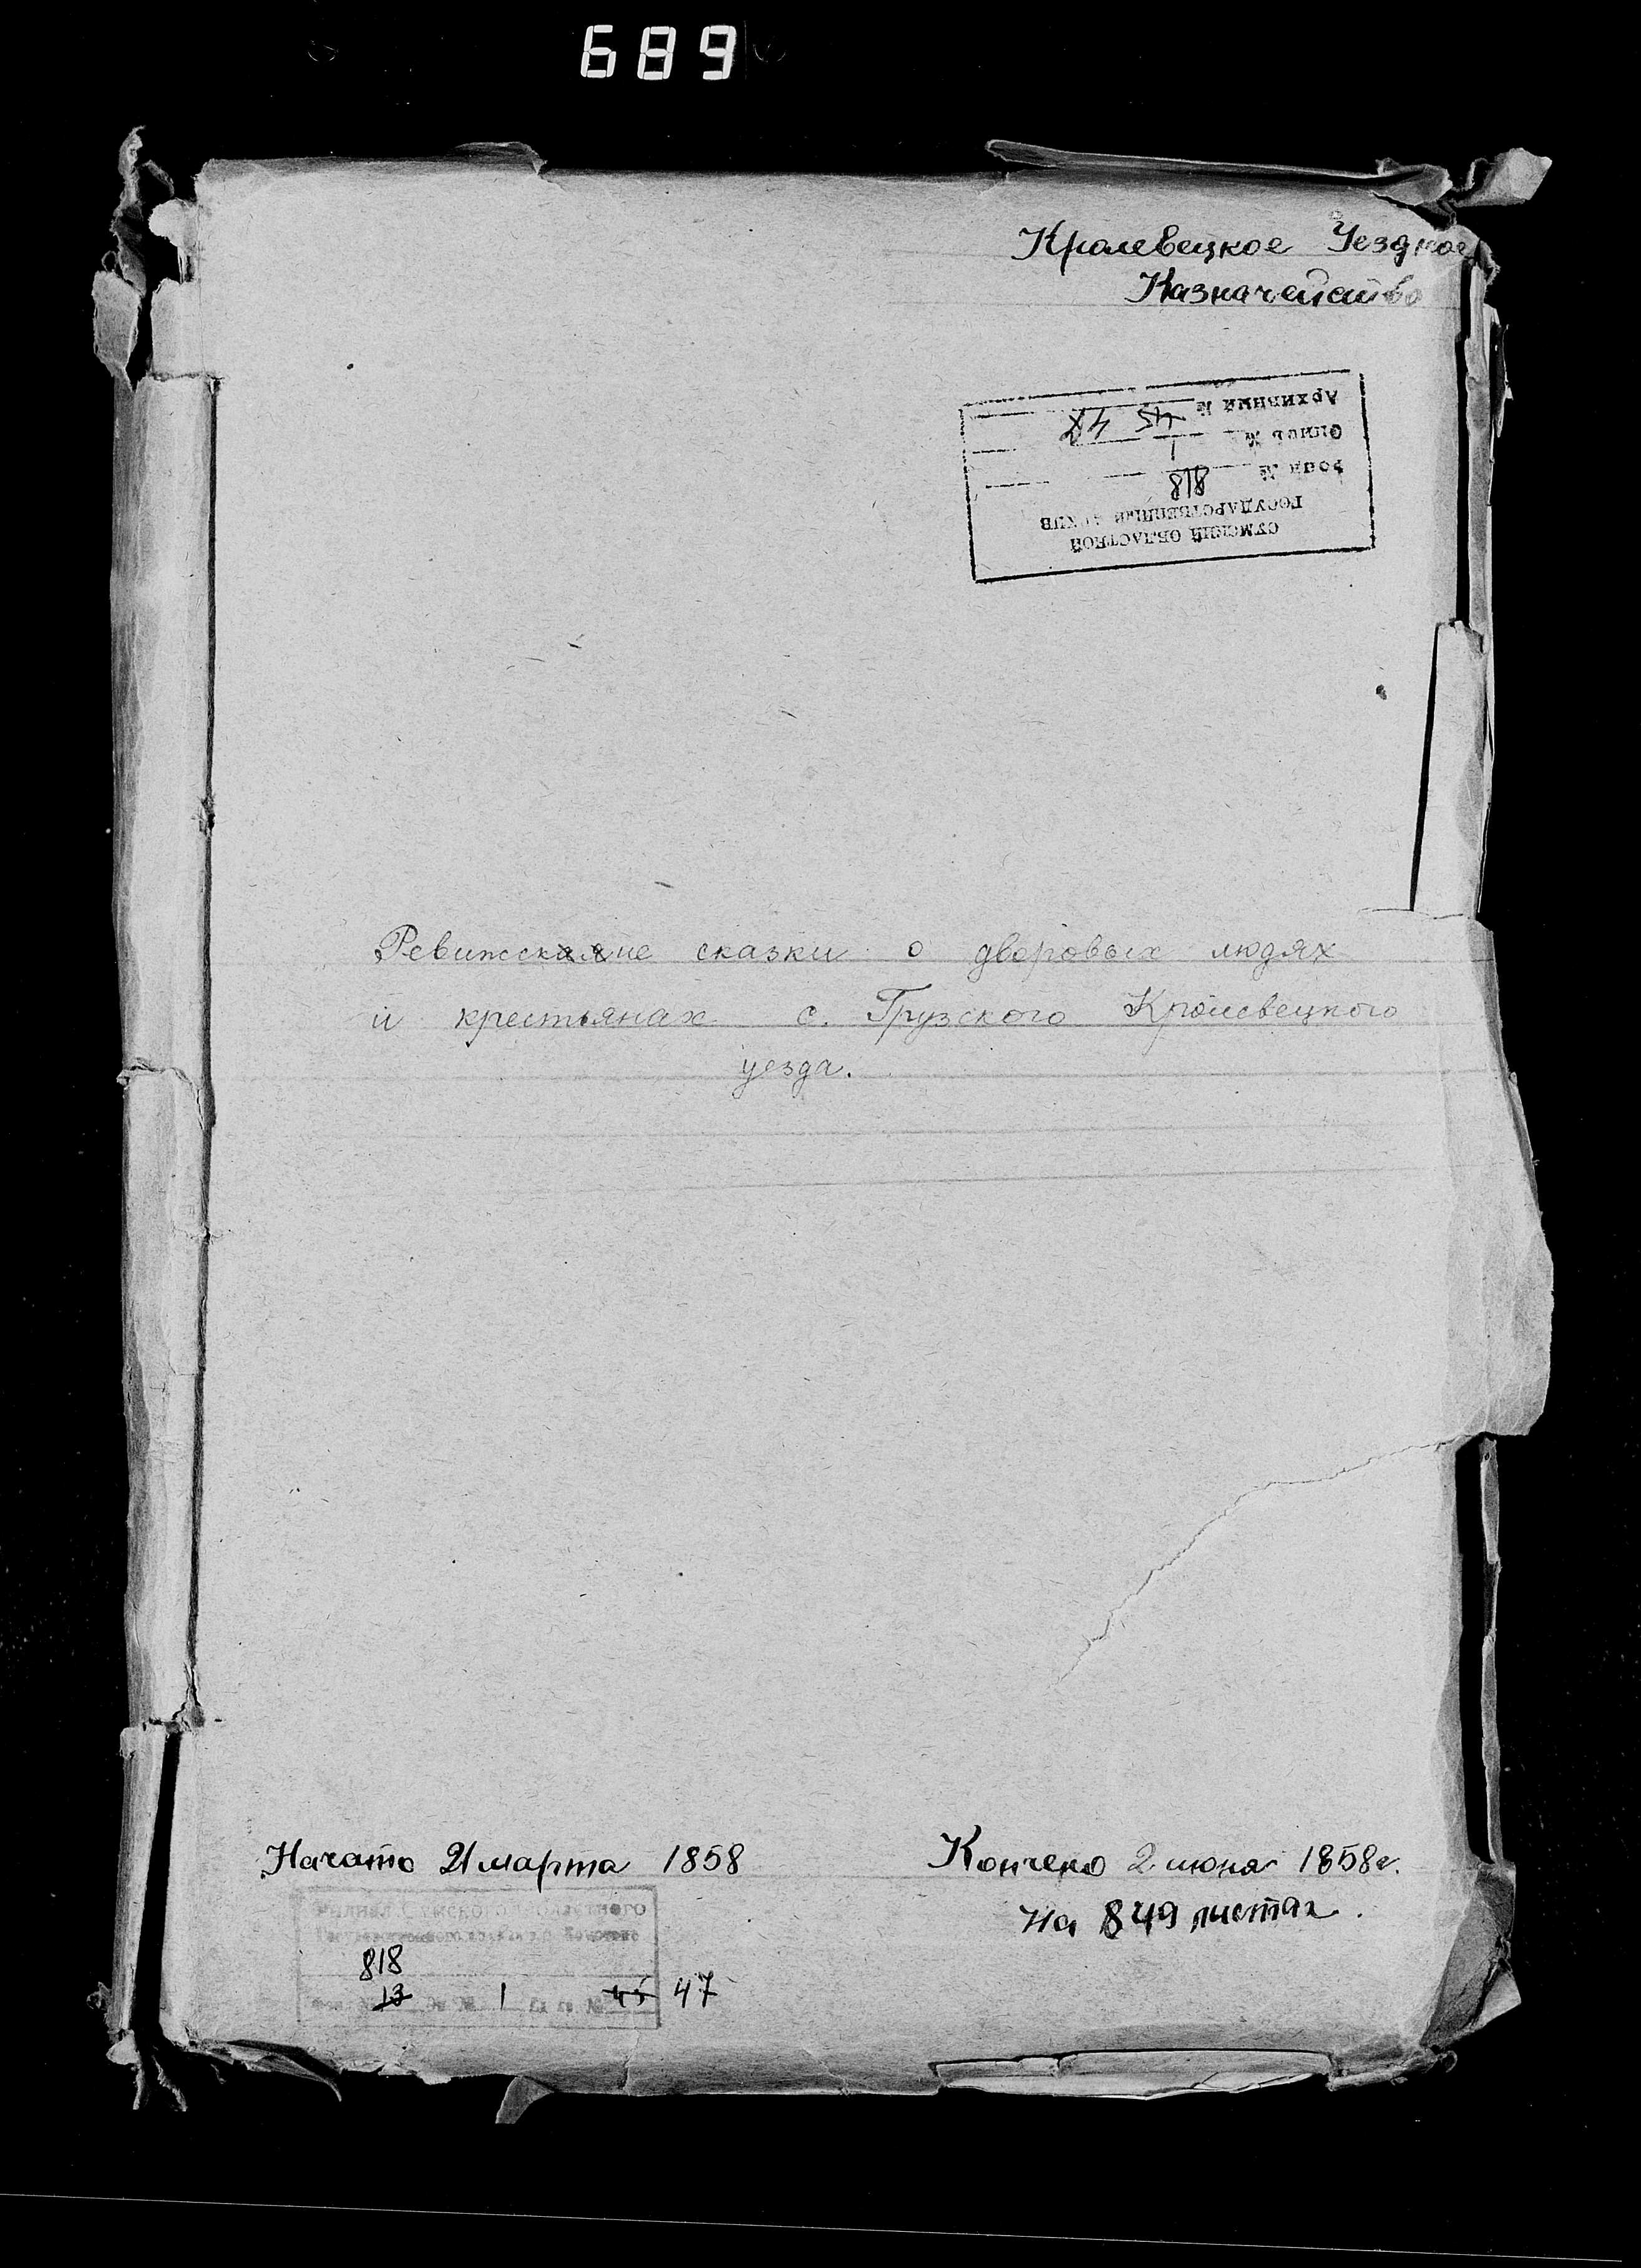 689
Кролевецкое Уездное
Казначейство
Архивный №
Опись № 1
Фонд № 818
ГОСУДАРСТВЕННЫЙ АРХИВ
СУМСКИЙ ОБЛАСТНОЙ
сказки о дворовых людях
и крестьянах с. Грузского Кролевецкого
уезда.
Начато 21 марта 1858
Кончено 2 июня 1858 г.
На 849 листах.
Филиал Сумского областного
Государственного архива в г. Конотопе
818
13 1 45 47